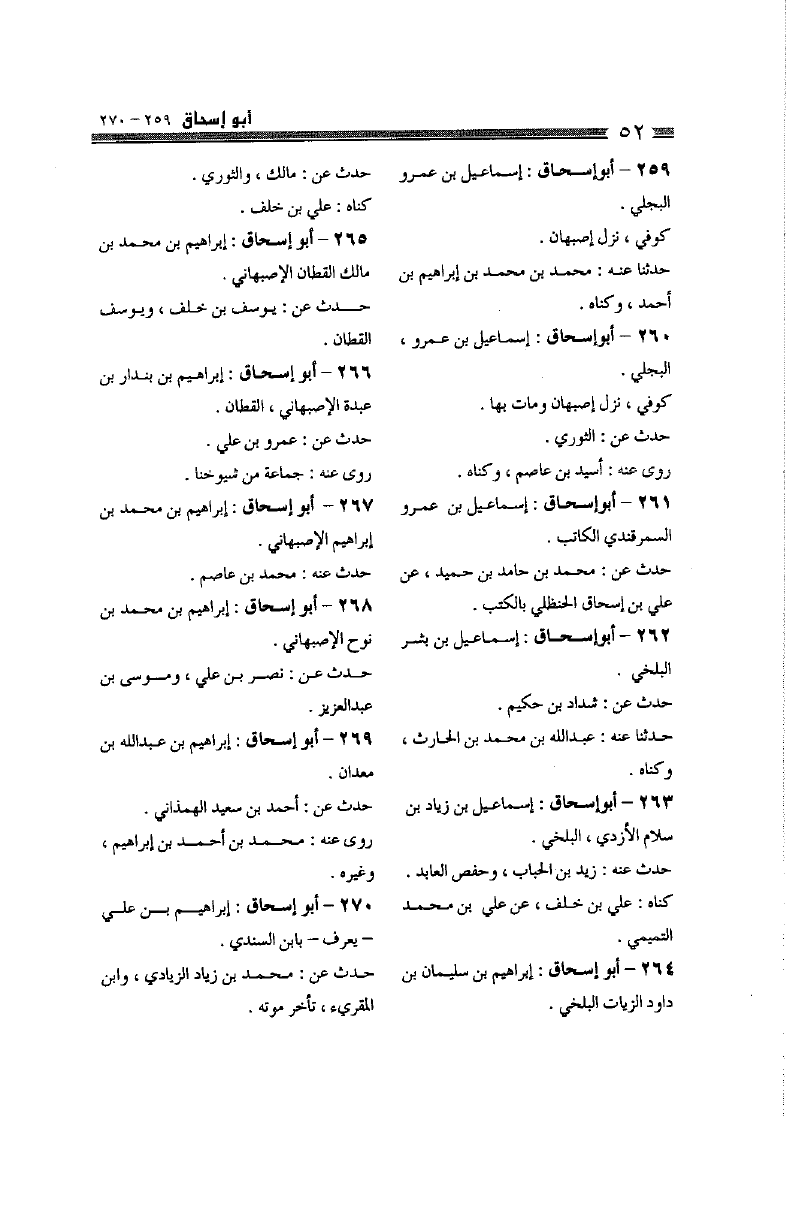 أبو إسحاق ٢٥٩ – ٢٧٠
٥٢
٢٥٩ – أبو إسحاق : إسماعيل بن عمرو
البجلي .
كوفي ، نزل إصبهان .
حدثنا عنه : محمد بن محمد بن إبراهيم بن
أحمد ، وكناه .
٢٦٠ – أبو إسحاق : إسماعيل بن عمرو ،
البجلي .
كوفي ، نزل إصبهان ومات بها .
حدث عن : الثوري .
روى عنه : أسيد بن عاصم ، وكناه .
٢٦١ – أبو إسحاق : إسماعيل بن عمرو
السمرقندي الكاتب .
حدث عن : محمد بن حامد بن حميد ، عن
علي بن إسحاق الحنظلي بالكتب .
٢٦٢ – أبو إسحاق : إسماعيل بن بشر
البلخي .
حدث عن : شداد بن حكيم .
حدثنا عنه : عبدالله بن محمد بن الحارث ،
وكناه .
٢٦٣ – أبو إسحاق : إسماعيل بن زياد بن
سلام الأزدي ، البلخي .
حدث عنه : زيد بن الحباب ، وحفص العابد .
كناه : علي بن خلف ، عن علي بن محمد
التميمي .
٢٦٤ – أبو إسحاق : إبراهيم بن سليمان بن
داود الزيات البلخي .
حدث عن : مالك ، والثوري .
كناه : علي بن خلف .
٢٦٥ – أبو إسحاق : إبراهيم بن محمد بن
مالك القطان الإصبهاني .
حدث عن : يوسف بن خلف ، ويوسف
القطان .
٢٦٦ – أبو إسحاق : إبراهيم بن بندار بن
عبدة الإصبهاني ، القطان .
حدث عن : عمرو بن علي .
روى عنه : جماعة من شيوخنا .
٢٦٧ – أبو إسحاق : إبراهيم بن محمد بن
إبراهيم الإصبهاني .
حدث عنه : محمد بن عاصم .
٢٦٨ – أبو إسحاق : إبراهيم بن محمد بن
نوح الإصبهاني .
حدث عن : نصر بن علي ، وموسى بن
عبدالعزيز .
٢٦٩ – أبو إسحاق : إبراهيم بن عبدالله بن
معدان .
حدث عن : أحمد بن سعيد الهمذاني .
روى عنه : محمد بن أحمد بن إبراهيم ،
وغيره .
٢٧٠ – أبو إسحاق : إبراهيم بن علي
– يعرف – بابن السندي .
حدث عن : محمد بن زياد الزيادي ، وابن
المقريء ، تأخر موته .